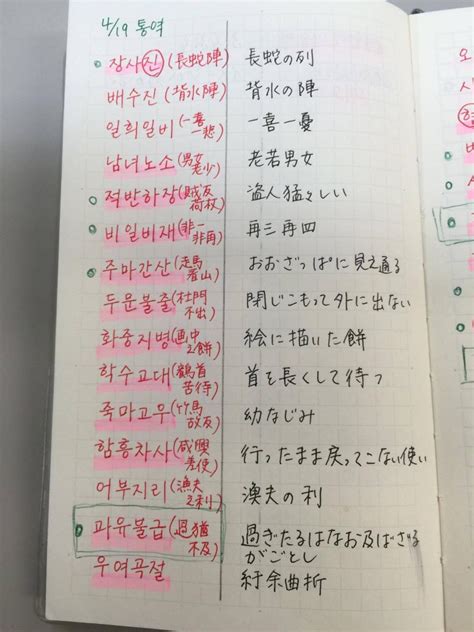 4/19 통역
장사진 (長蛇陣) 長蛇の列
배수진 (背水陣) 背水の陣
일희일비 (一喜一悲) 一喜一憂
남녀노소 (男女老少) 老若男女
적반하장 (賊反荷杖) 盗人猛々しい
비일비재 (非一非再) 再三再四
주마간산 (走馬看山) おおざっぱに見て通る
두문불출 (杜門不出) 閉じこもって外に出ない
화중지병 (画中之餅) 絵に描いた餅
학수고대 (鶴首苦待) 首を長くして待つ
죽마고우 (竹馬故友) 幼なじみ
함흥차사 (咸興差使) 行ったまま戻ってこない使い
어부지리 (漁夫之利) 漁夫の利
과유불급 (過猶不及) 過ぎたるはなお及ばざる
がごとし
우여곡절 紆余曲折